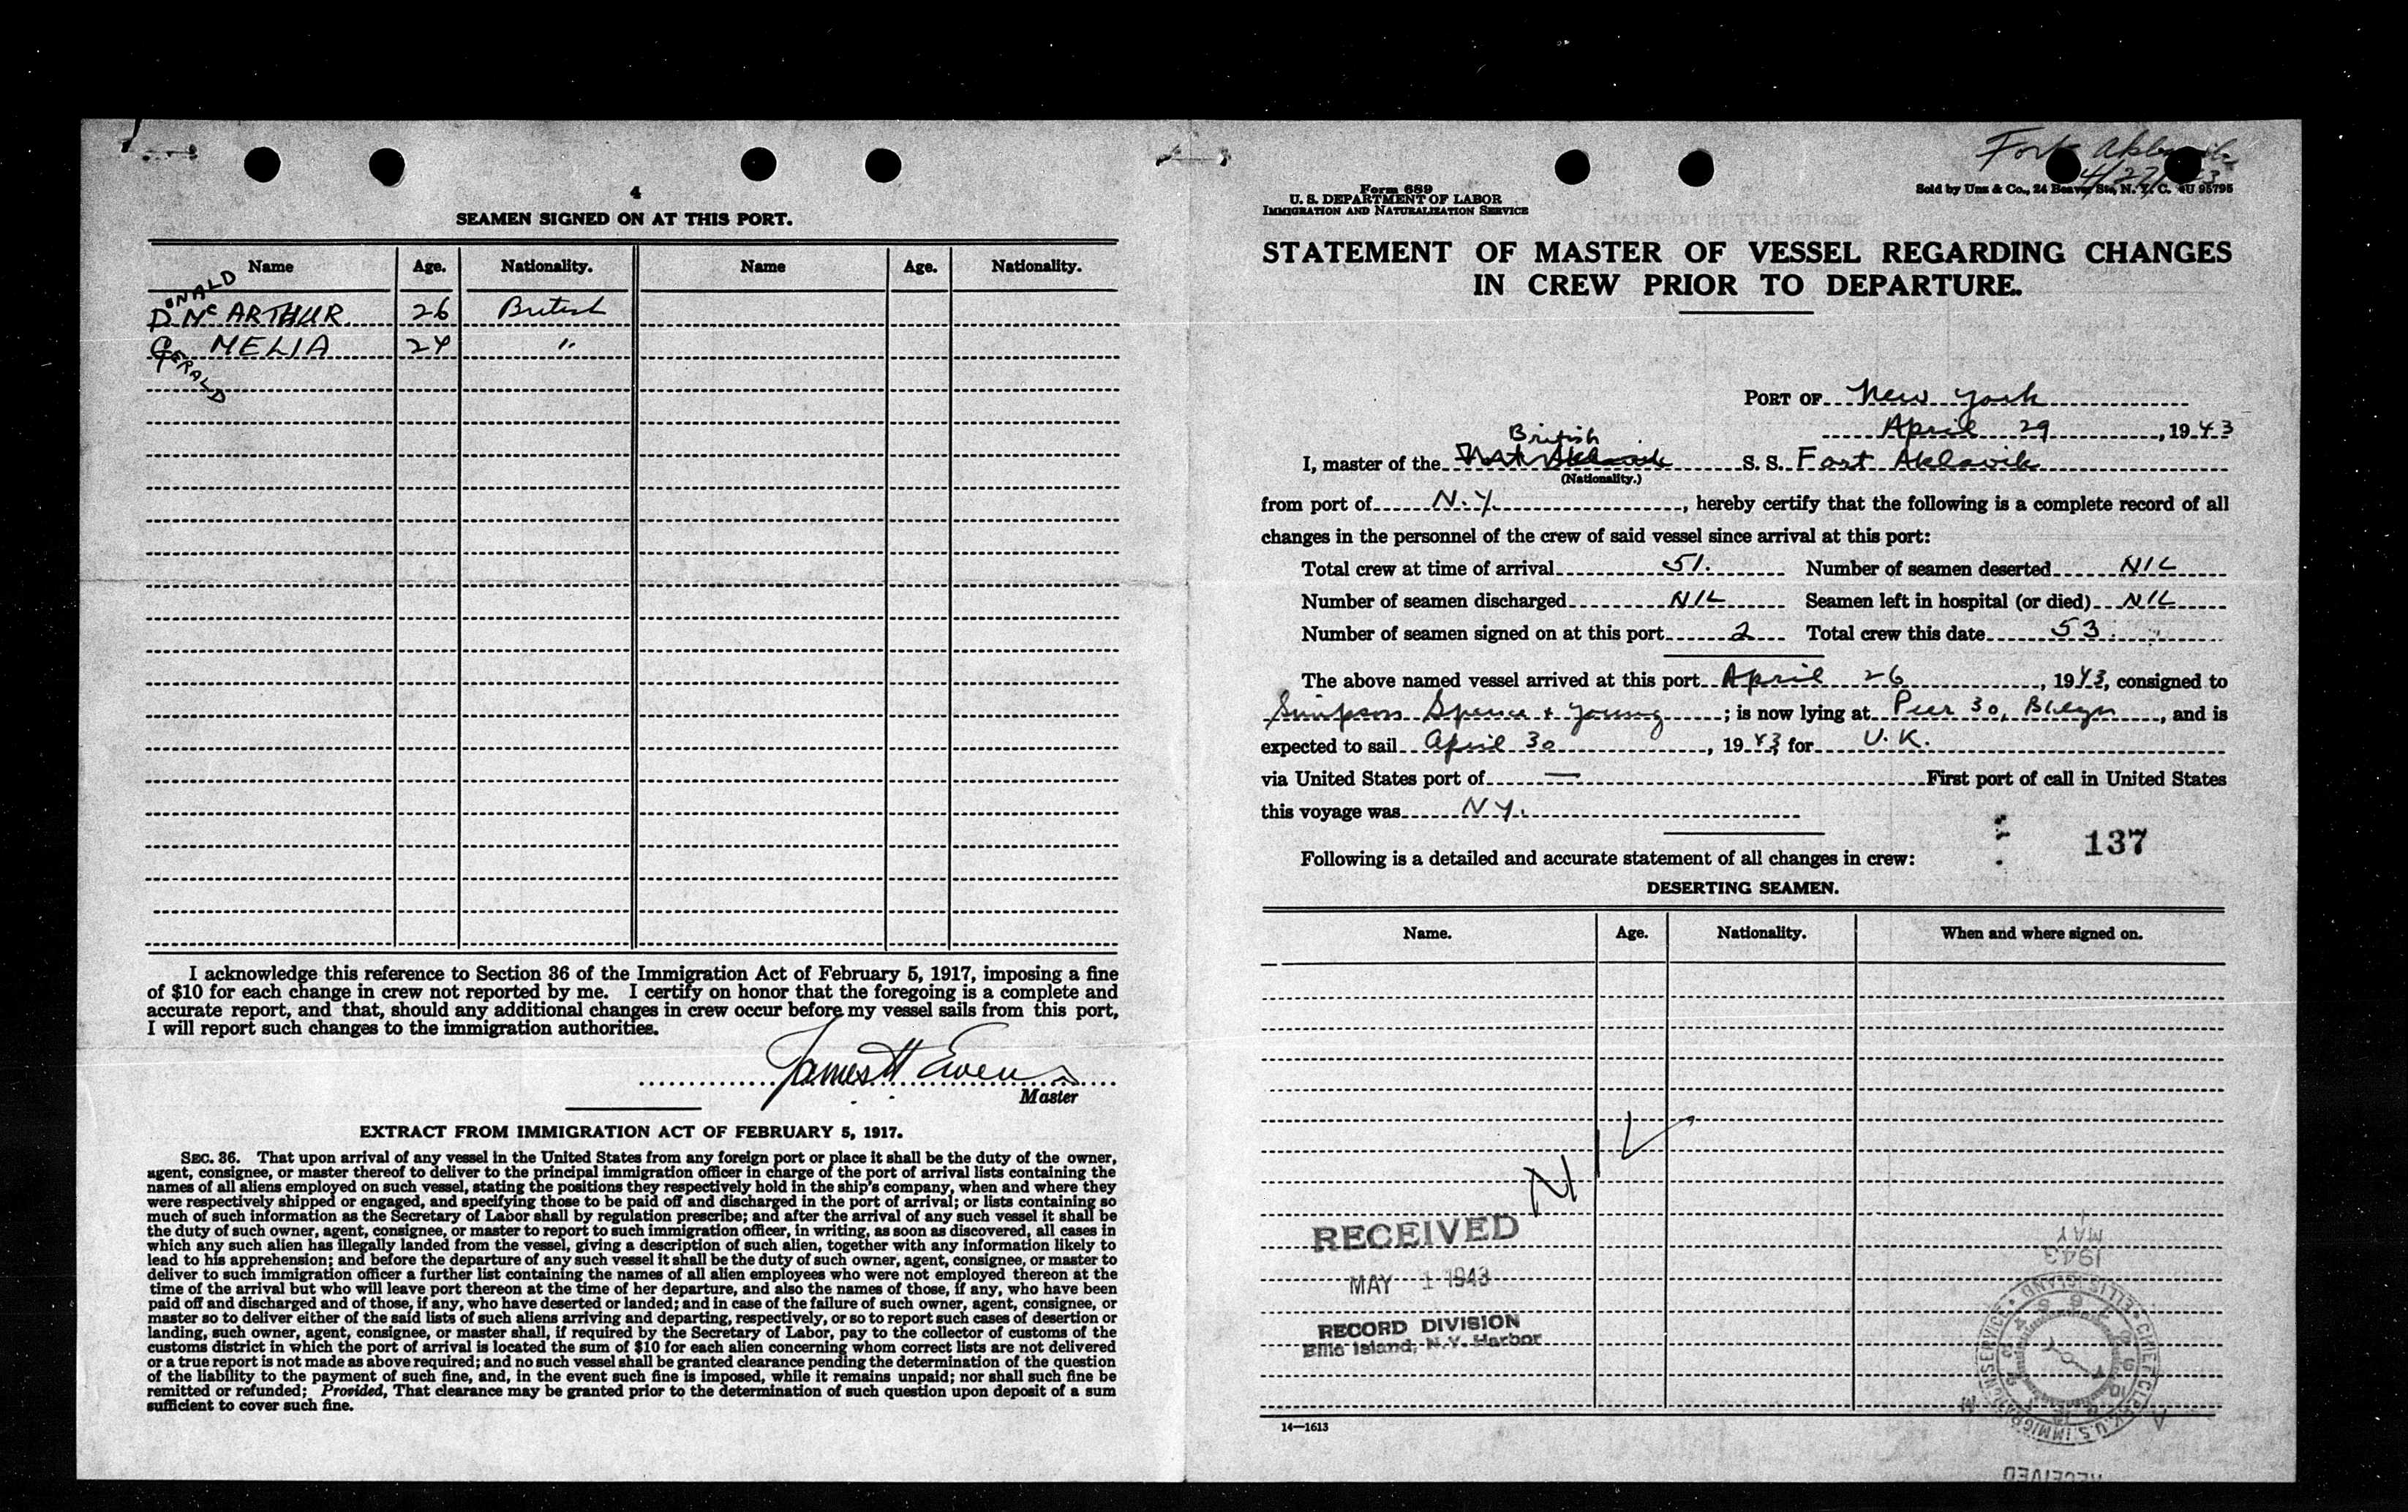 4
SEAMEN SIGNED ON AT THIS PORT.
Name Age. Nationality. Name Age. Nationality.
ONALD
D. Mc ARTHUR 26 British
G MELIA 24 "
ERALD
I acknowledge this reference to Section 36 of the Immigration Act of February 5, 1917, imposing a fine
of $10 for each change in crew not reported by me. I certify on honor that the foregoing is a complete and
accurate report, and that, should any additional changes in crew occur before my vessel sails from this port,
I will report such changes to the immigration authorities.
James H Ewens
Master
EXTRACT FROM IMMIGRATION ACT OF FEBRUARY 5, 1917.
SEC. 36. That upon arrival of any vessel in the United States from any foreign port or place it shall be the duty of the owner,
agent, consignee, or master thereof to deliver to the principal immigration officer in charge of the port of arrival lists containing the
names of all aliens employed on such vessel, stating the positions they respectively hold in the ship's company, when and where they
were respectively shipped or engaged, and specifying those to be paid off and discharged in the port of arrival; or lists containing so
much of such information as the Secretary of Labor shall by regulation prescribe; and after the arrival of any such vessel it shall be
the duty of such owner, agent, consignee, or master to report to such immigration officer, in writing, as soon as discovered, all cases in
which any such alien has illegally landed from the vessel, giving a description of such alien, together with any information likely to
lead to his apprehension; and before the departure of any such vessel it shall be the duty of such owner, agent, consignee, or master to
deliver to such immigration officer a further list containing the names of all alien employees who were not employed thereon at the
time of the arrival but who will leave port thereon at the time of her departure, and also the names of those, if any, who have been
paid off and discharged and of those, if any, who have deserted or landed; and in case of the failure of such owner, agent, consignee, or
master so to deliver either of the said lists of such aliens arriving and departing, respectively, or so to report such cases of desertion or
landing, such owner, agent, consignee, or master shall, if required by the Secretary of Labor, pay to the collector of customs of the
customs district in which the port of arrival is located the sum of $10 for each alien concerning whom correct lists are not delivered
or a true report is not made as above required; and no such vessel shall be granted clearance pending the determination of the question
of the liability to the payment of such fine, and, in the event such fine is imposed, while it remains unpaid; nor shall such fine be
remitted or refunded; Provided, That clearance may be granted prior to the determination of such question upon deposit of a sum
sufficient to cover such fine.
Fort Aklavik
4/27/43
Form 689
U. S. DEPARTMENT OF LABOR
IMMIGRATION AND NATURALIZATION SERVICE
Sold by Unz & Co., 24 Beaver St., N. Y. C. 95795
STATEMENT OF MASTER OF VESSEL REGARDING CHANGES
IN CREW PRIOR TO DEPARTURE.
PORT OF New York
April 29, 1943
British
I, master of the Fort Aklavik S. S. Fort Aklavik
(Nationality.)
from port of N.Y., hereby certify that the following is a complete record of all
changes in the personnel of the crew of said vessel since arrival at this port:
Total crew at time of arrival 51. Number of seamen deserted NIL
Number of seamen discharged NIL Seamen left in hospital (or died) NIL
Number of seamen signed on at this port 2 Total crew this date 53
The above named vessel arrived at this port April 26, 1943, consigned to
Simpson Spence & Young; is now lying at Pier 30, Bklyn, and is
expected to sail April 30, 1943 for U.K.
via United States port of — First port of call in United States
this voyage was N.Y.
137
Following is a detailed and accurate statement of all changes in crew:
DESERTING SEAMEN.
Name. Age. Nationality. When and where signed on.
NIL
RECEIVED
MAY 1 1943
RECORD DIVISION
Ellis Island, N.Y. Harbor
MAY 1
1943
CHIEF CLERK, U.S. IMMIGRATION SERVICE • ELLIS ISLAND •
14—1613
RECEIVED